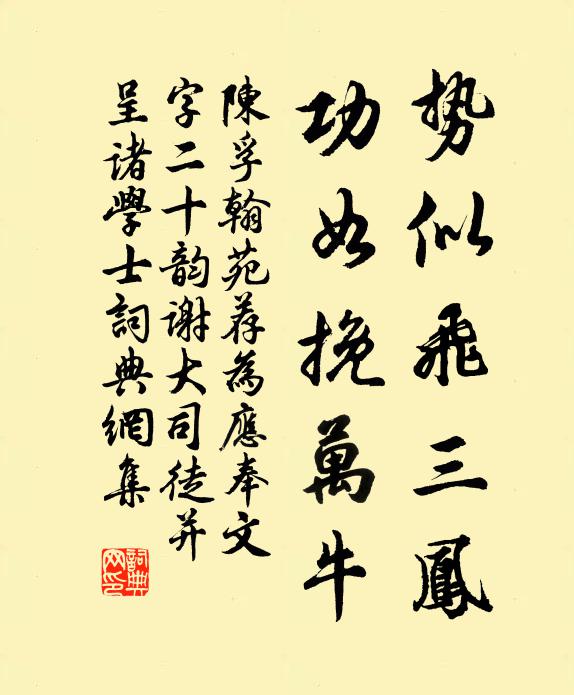 势似飛三鳳
功如挽萬牛
陳孚翰苑荐為應奉文
字二十韵谢大司徒并
呈诸學士詞典網集
詞典
网印